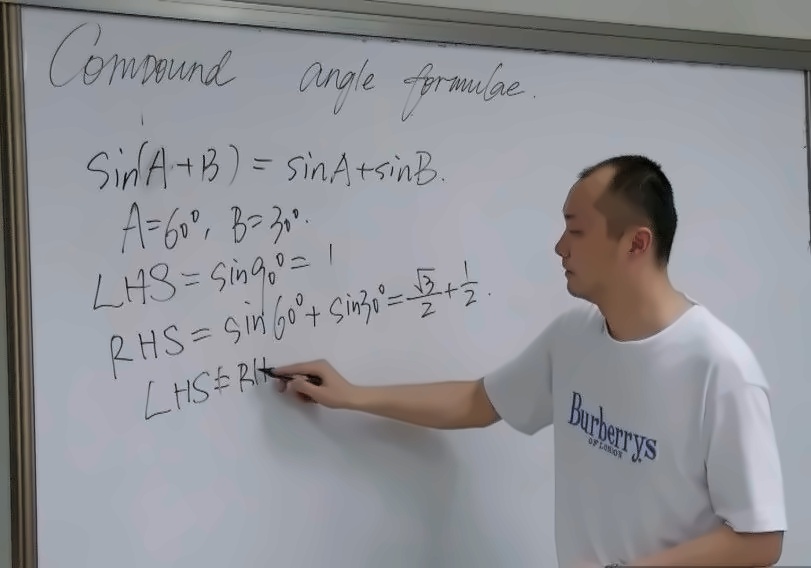 Compound angle formulae.
sin(A+B) = sinA+sinB.
A=60°, B=30°.
LHS = sin90° = 1
RHS = sin60° + sin30° = √3/2 + 1/2.
LHS ≠ RH
Burberrys
OF LONDON